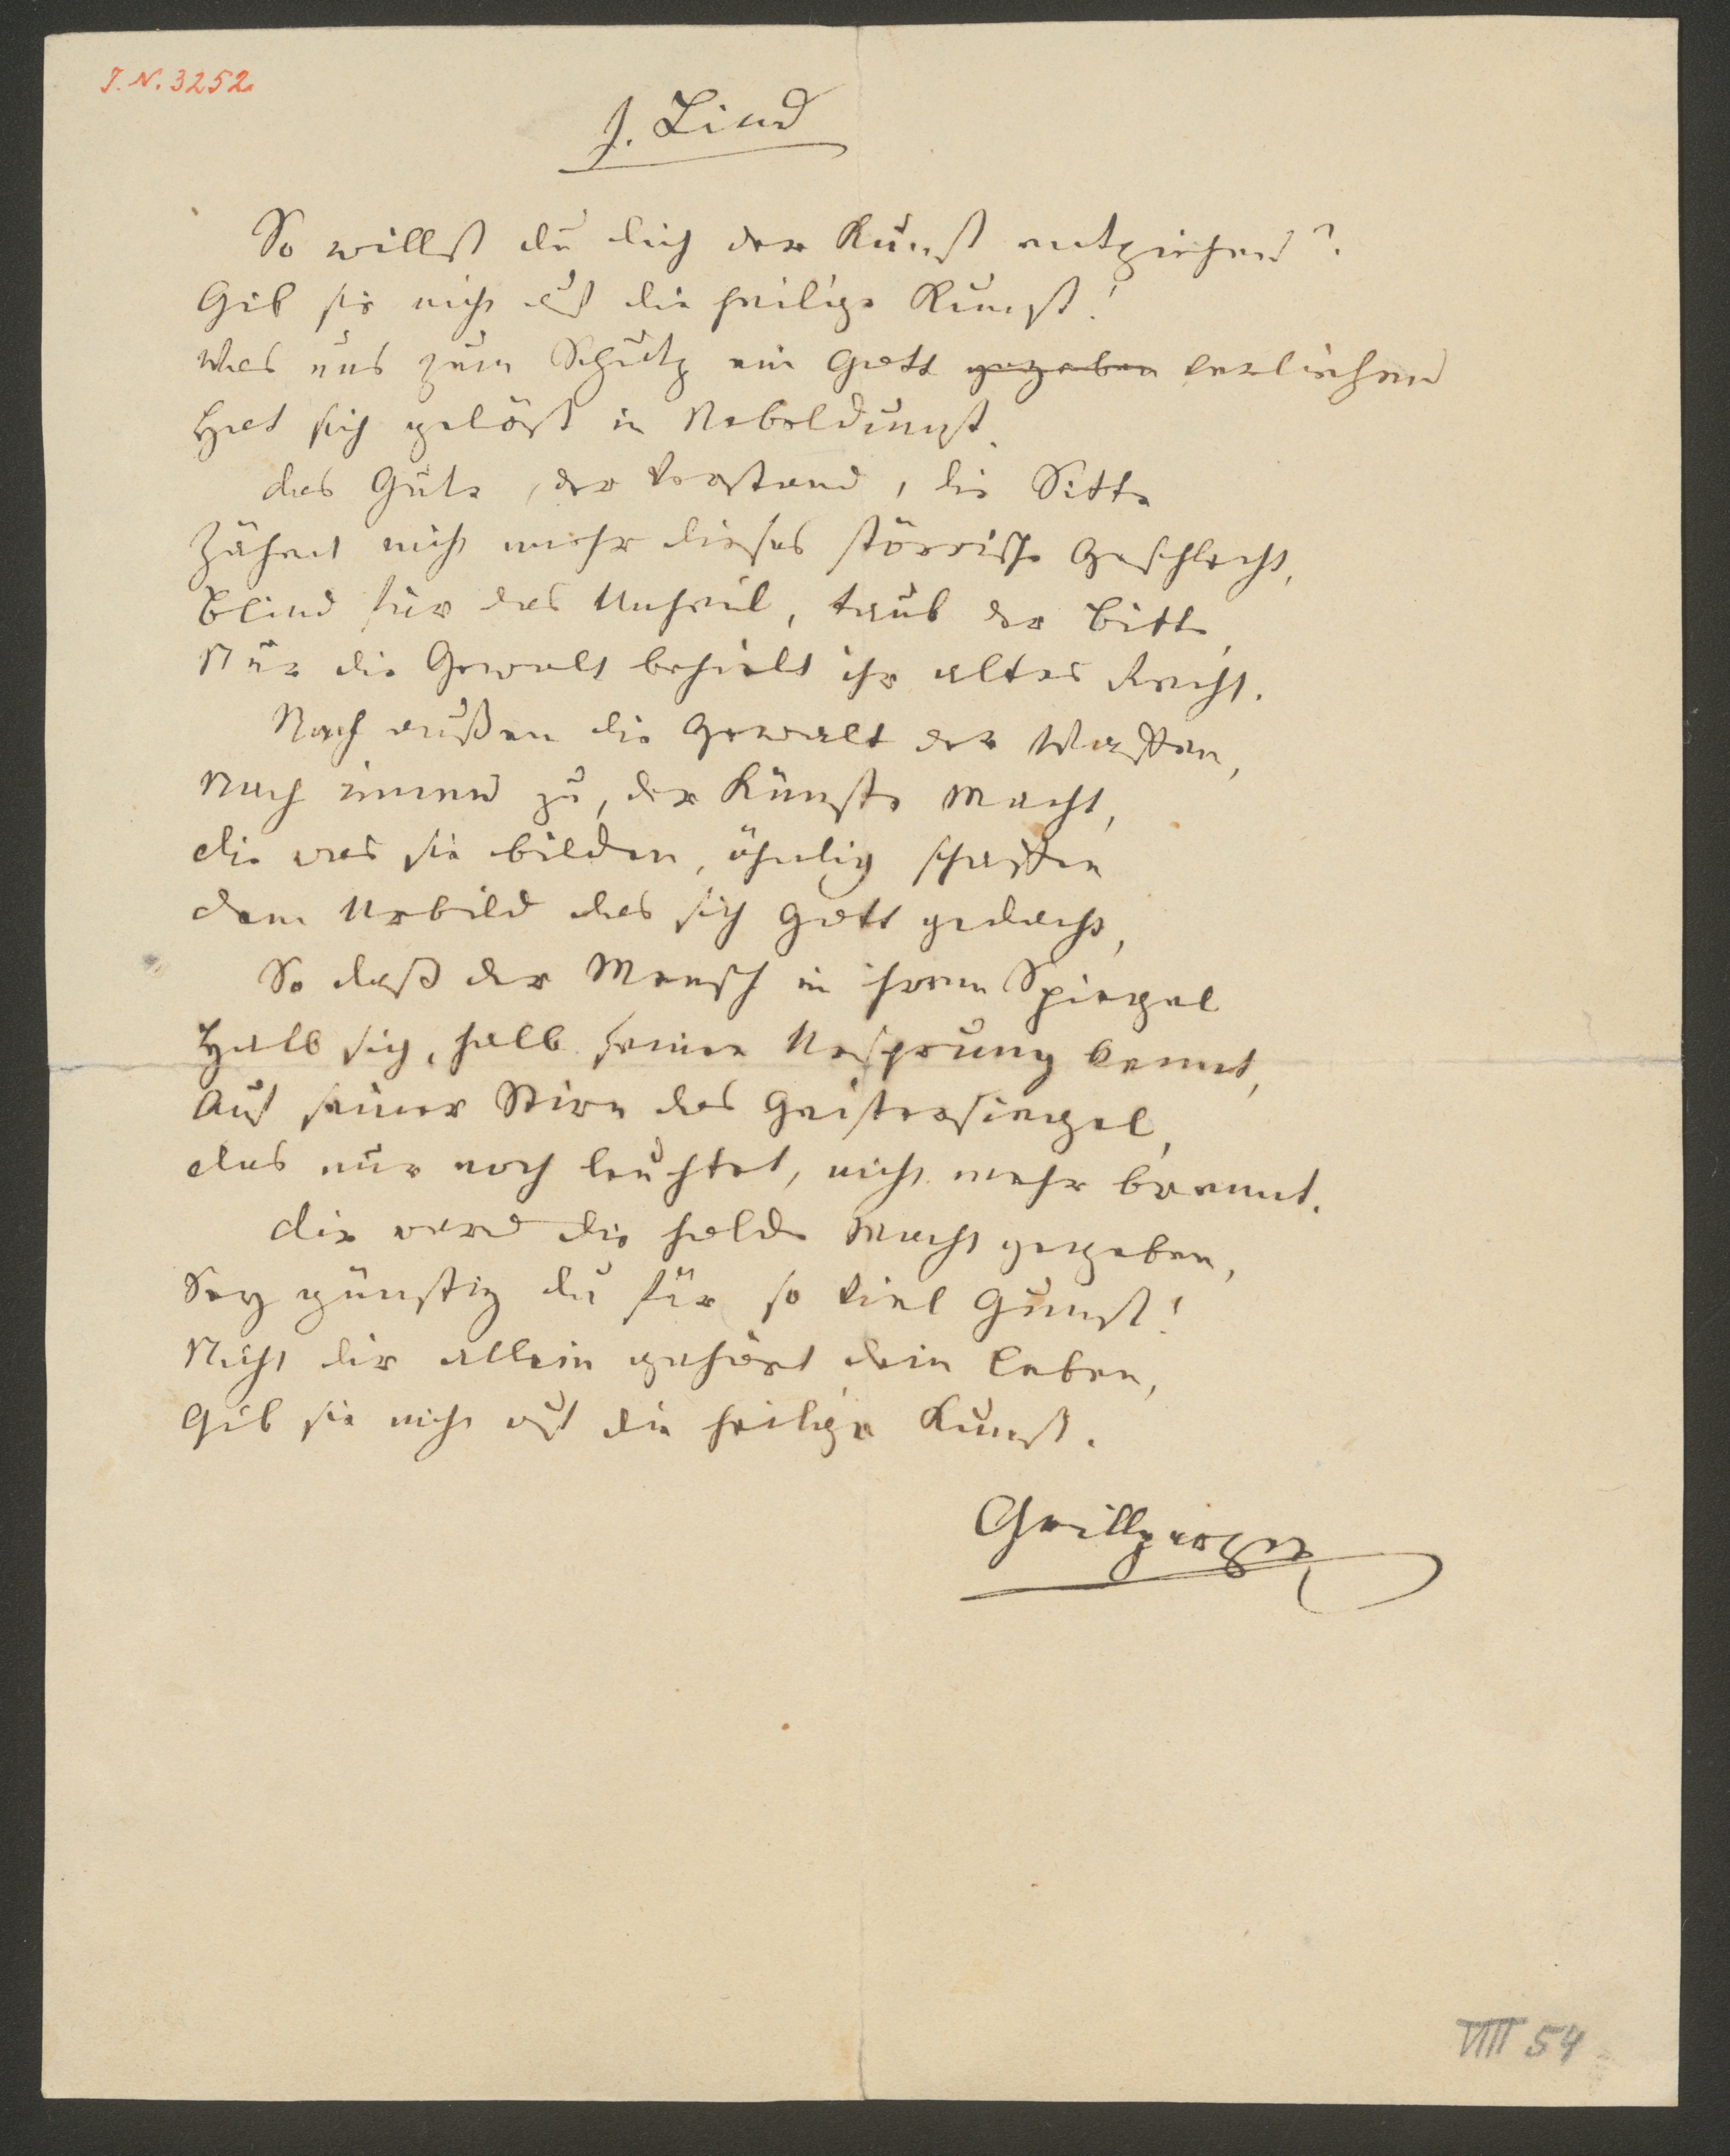 J. N. 3252
J. Lind
So willst du dich der Kunst entziehen?
Gib sie nicht auf die heilige Kunst!
Was uns zum Schutz ein Gott gegeben verliehen
Hat sich gelöst in Nebeldunst.
das Gute, der Verstand, die Sitte
Zähmt nicht mehr dieses störrische Geschlecht,
Blind für das Unheil, taub der Bitte,
Nur die Gewalt behielt ihr altes Recht.
Nach außen die Gewalt der Waffen,
Nach innen zu, der Künste Macht,
die was sie bilden, ähnlich schaffen
dem Urbild das sich Gott gedacht,
So daß der Mensch in ihrem Spiegel
Halb sich, halb seinen Ursprung kennt,
Auf seiner Stirn das Geistersiegel,
das nur noch leuchtet, nicht mehr brennt.
dir ward die holde Macht gegeben,
Sey günstig du für so viel Gunst!
Nicht dir allein gehört dein Leben,
Gib sie nicht auf die heilige Kunst.
Grillparzer
VIII 54